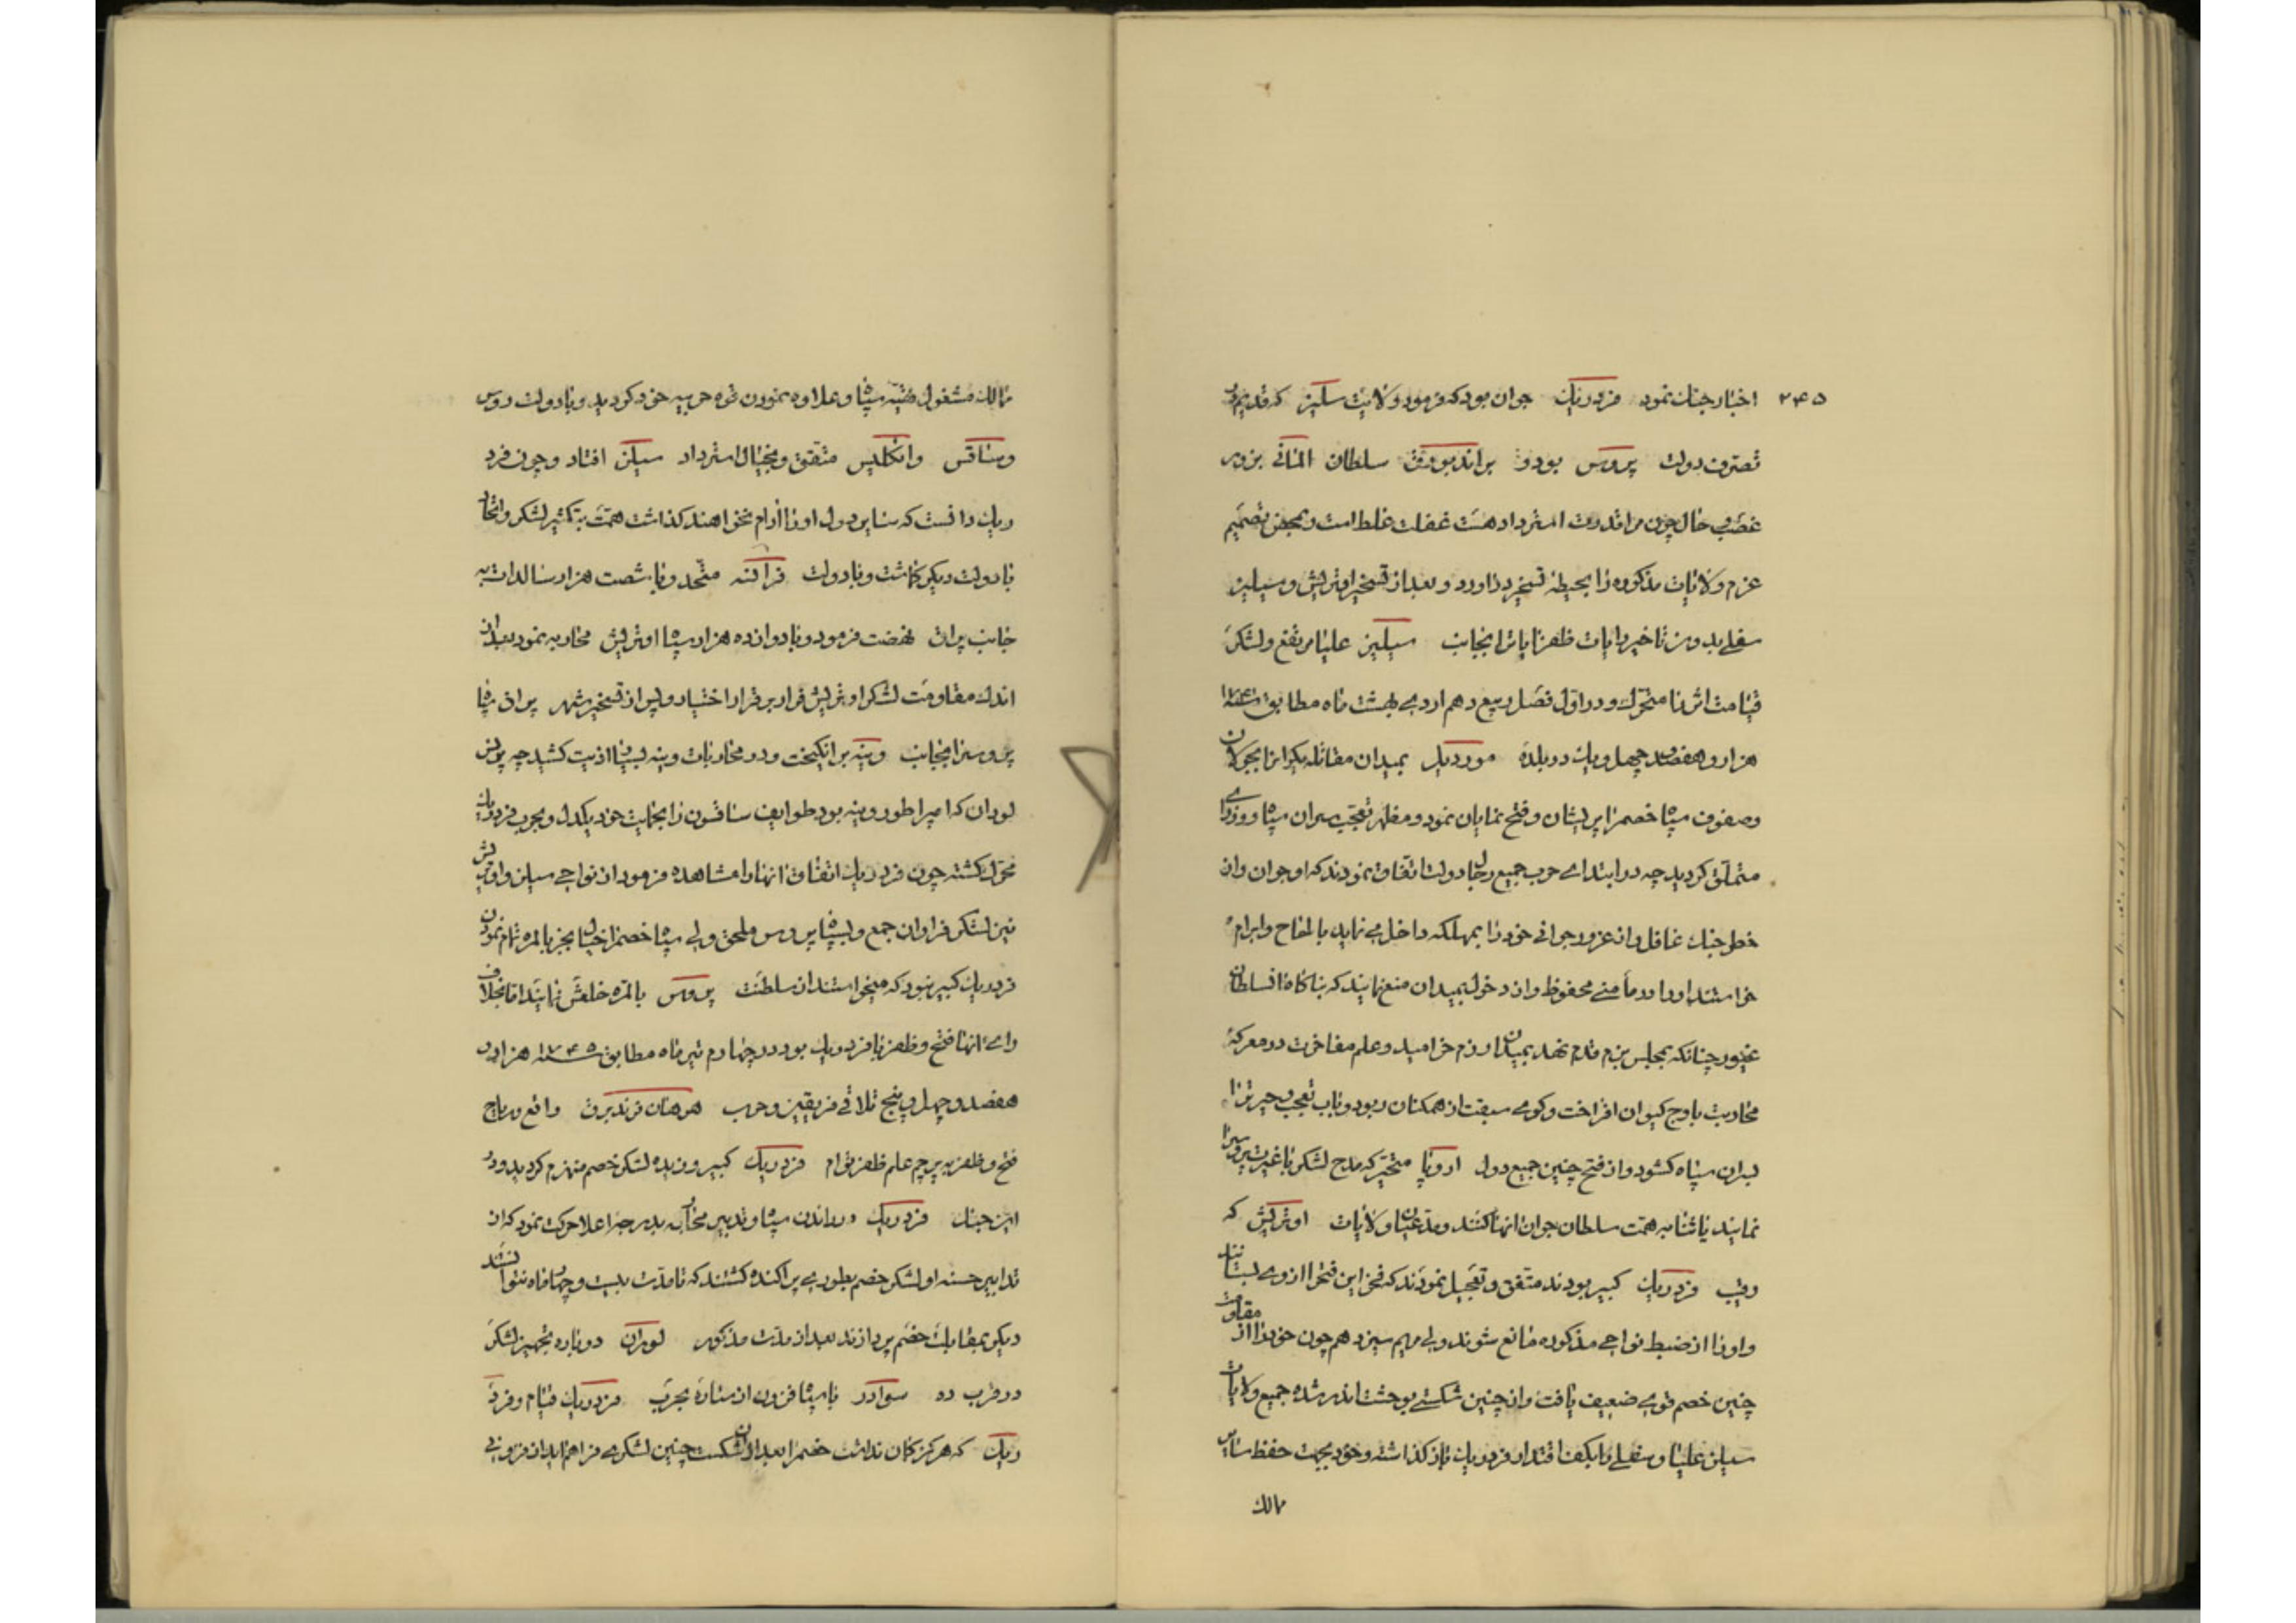 ۲۴۵
اخبار جنك نمود فردریك جوان بود که فرمود ولایت سلیز که قدیم در
تصرف دولت پروس بود و براندبورق سلطان المانی بزور
غصب و حال چون مرا قدرت استرداد هست غفلت غلط است و بمحض تصمیم
عزم ولایات مذکوره را بحیطهٔ تسخیر در آورد و بعد از تسخیر اوتریش و سیلیز
سفلی بدون تاخیر رایات ظفر آیات را بجانب سیلیز علیا مرتفع و لشکر
قیامت اثر را متحرك و در اول فصل ربیع دهم اردیبهشت ماه مطابق سنه ۱۷۴۱
هزار و هفتصد و چهل و یك در بلدهٔ موردیل بمیدان مقاتله یکران را بجولان
وصفوف سپاه خصم را پریشان و فتح نمایان نمود و مظهر تعجب سران سپاه و وزرای
متملق کردید چه در ابتدای حرب جمیع رجال دولت اتفاق نمودند که او جوان و از
خطر جنك غافل و از غرور جوانی خود را بمهلکه داخل می نماید بالحاح و ابرام
خواستند او را در مأمنی محفوظ و از دخول بمیدان منع نمایند که بناکاه آن سلطان
غیور چنانکه بمجلس بزم قدم نهد بمیدان رزم خرامید و علم مفاخرت در معرکهٔ
محاربت باوج کیوان افراخت و کوی سبقت از همکنان ربود و باب تعجب و حیرت را
بسران سپاه کشود و از فتح چنین جمیع دول اروپا متحیر که مدح لشکر با غیرت پروس را
نمایند یا ثنا به همت سلطان جوان آنها کنند و مدعیان ولایات اوتریش که
رقیب فردریك کبیر بودند متفق و تعجیل نمودند که فخر این فتح را از وی بستانند
و او را از ضبط نواحی مذکوره مانع شوند ولی مریم سیزدهم چون خود را از مقاومت
چنین خصم قوی ضعیف یافت و از چنین شکستی بوحشت اندر شده جمیع ولایات
سیلیز علیا و سفلی را بکف اقتدار فردریك باز کذاشته و خود بجهت حفظ سایر
ممالك
ممالك مشغول تهیّهٔ سپاه و علاوه نمودن قوه حربیه خود کردید و با دولت روس
و ساقس و انکلیس متفق و بخیال استرداد سیلیز افتاد و چون فرد
ریك دانست که سایر دول او را آرام نخواهند کذاشت همت به تکثیر لشکر و اتحاد
با دولت دیکر کماشت و با دولت فرانسه متّحد و با شصت هزار سالدات به
جانب پراق نهضت فرمود و با دوازده هزار سپاه اوتریش محاربه نمود بعد از
اندك مقاومت لشکر اوتریش فرار بر قرار اختیار و پس از تسخیر شهر پراق سپاه
پروس را بجانب وینه برانکیخت و در محاربات وینه بسیار اذیت کشید چه پرنس
لوران که امپراطور وینه بود طوایف ساقسون را بحمایت خود یکدل و بحرب فردریك
محرك کشته چون فردریك اتفاق آنها را مشاهده فرمود از نواحی سیلیز و اوتریش
نیز لشکر فراوان جمع و بسپاه پروس ملحق ولی سپاه خصم را خیال بجز بالمره تمام نمودن
فردریك کبیر نبود که میخواستند از سلطنت پروس بالمره خلعش نمایند اما بخلاف
رای آنها فتح و ظفر با فردریك بود در چهارم تیر ماه مطابق سنه ۱۷۴۵ هزار و
هفتصد و چهل و پنج تلاقی فریقین و حرب هوهان فریدبرق واقع و ریاح
فتح و ظفر به پرچم علم ظفر توام فردریك کبیر وزیده لشکر خصم منهزم کردید و در
این جنك فردریك در راندن سپاه و تدبیر محاربه بدرجهٔ اعلا حرکت نمود که از
تدابیر حسنه او لشکر خصم بطوری پراکنده کشتند که تا مدت بیست و چهار ماه نتوانستند
دیکر بمقابلهٔ خصم پردازند بعد از مدت مذکور لوران دوباره بتجهیز لشکر
در قرب ده سوادر با سپاه افزون از ستاره بحرب فردریك قیام و فرد
ریك که هرکز کمان نداشت خصم را بعد از آن شکست چنین لشکری فراهم آید از فزونی